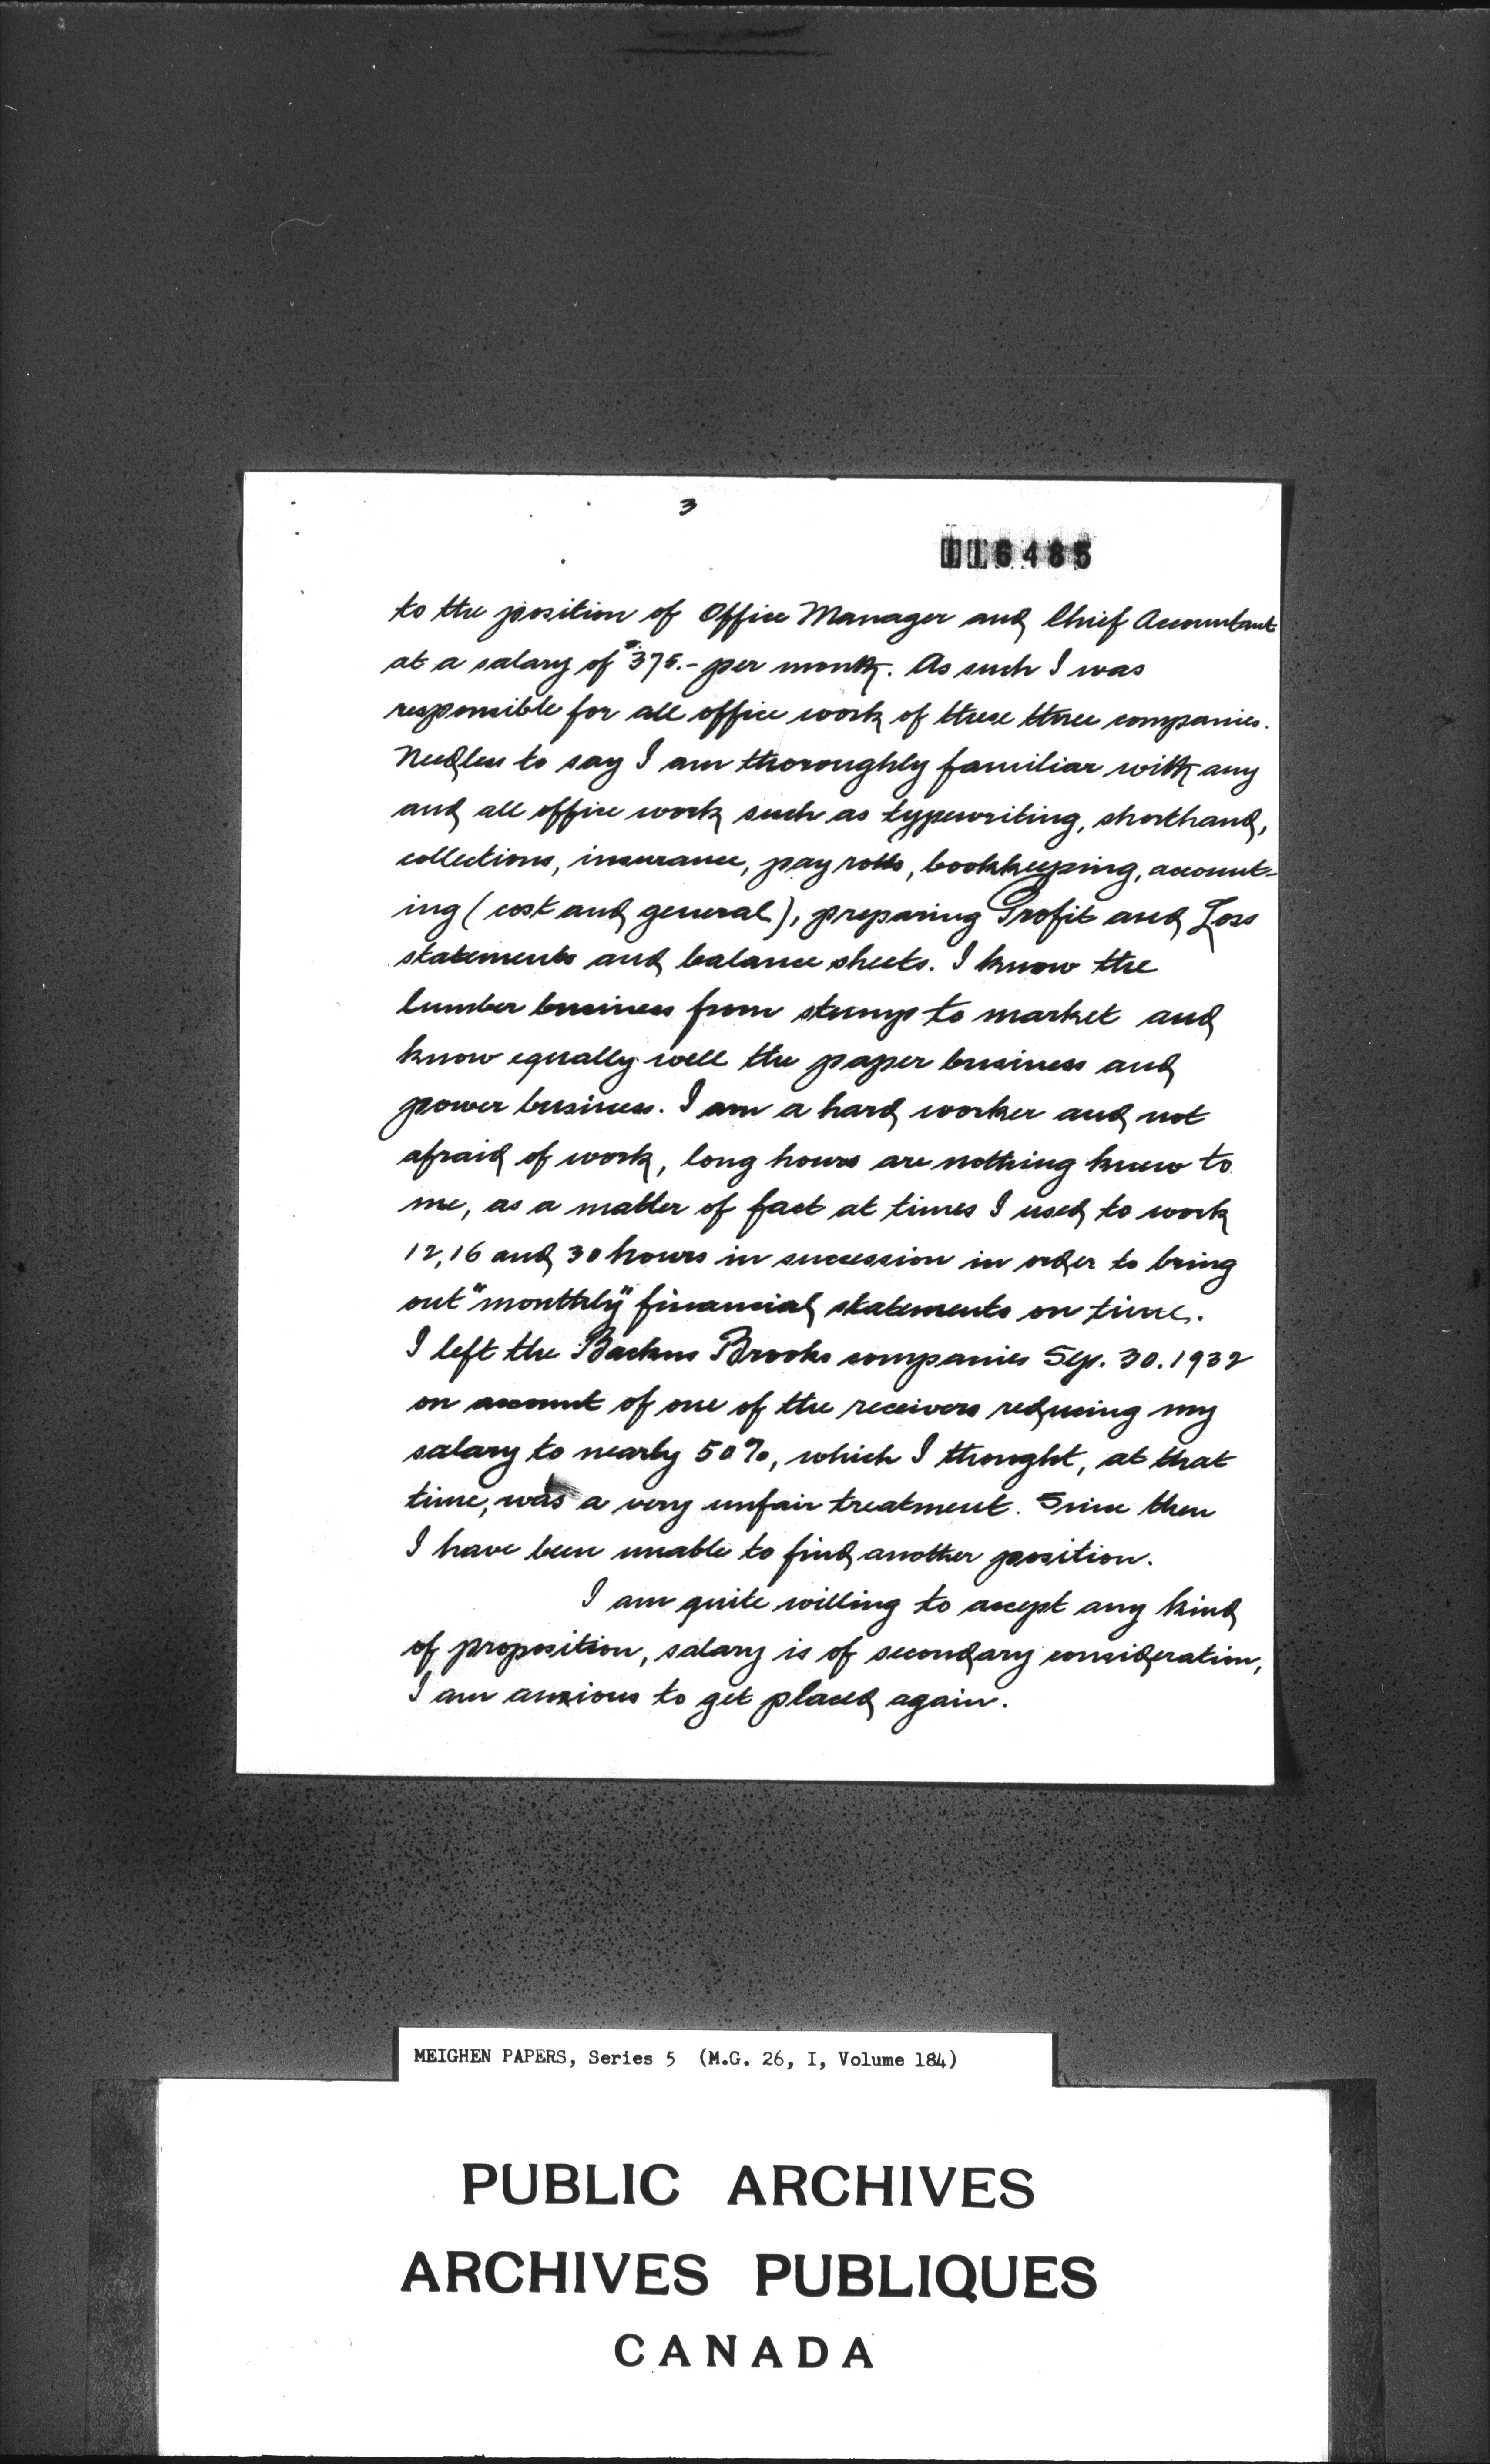 3
116485
to the position of Office Manager and Chief Accountant
at a salary of $375.- per month. As such I was
responsible for all office work of these three companies.
Needless to say I am thoroughly familiar with any
and all office work such as typewriting, shorthand,
collections, insurance, pay rolls, bookkeeping, account-
ing (cost and general), preparing Profit and Loss
statements and balance sheets. I know the
lumber business from stump to market and
know equally well the paper business and
power business. I am a hard worker and not
afraid of work, long hours are nothing knew to
me, as a matter of fact at times I used to work
12, 16 and 30 hours in succession in order to bring
out "monthly" financial statements on time.
I left the Backus Brooks companies Sep. 30. 1932
on account of one of the receivers reducing my
salary to nearly 50%, which I thought, at that
time, was a very unfair treatment. Since then
I have been unable to find another position.
I am quite willing to accept any kind
of proposition, salary is of secondary consideration,
I am anxious to get placed again.
MEIGHEN PAPERS, Series 5 (M.G. 26, I, Volume 184)
PUBLIC ARCHIVES
ARCHIVES PUBLIQUES
CANADA